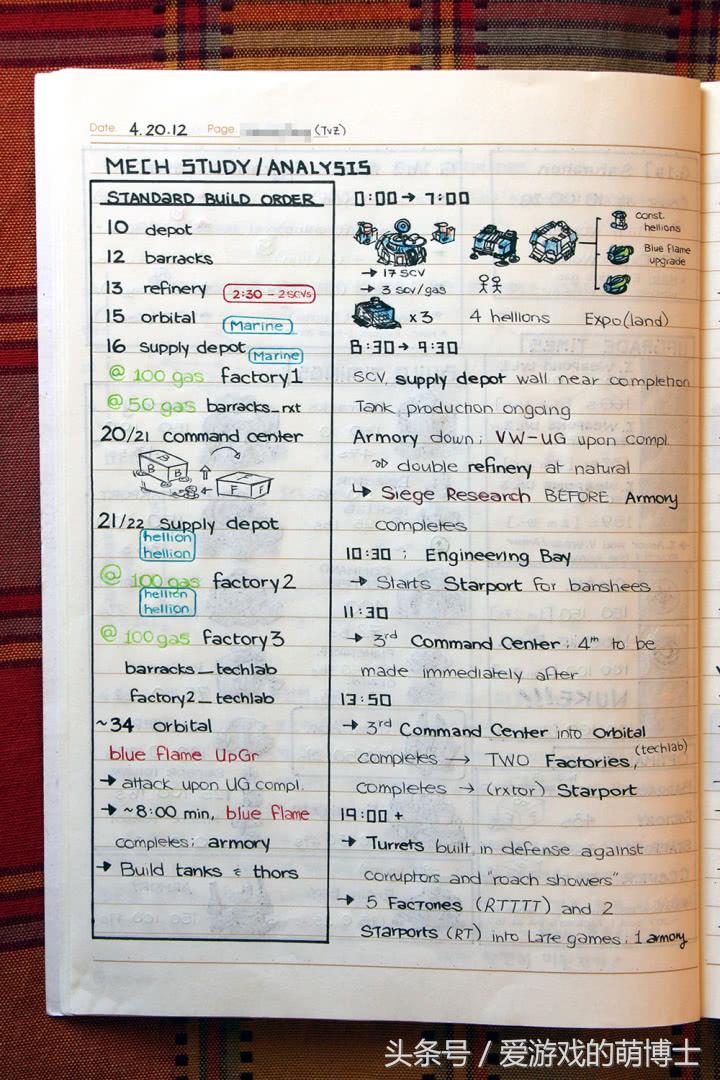 Date. 4.20.12 Page. (TvZ)
MECH STUDY/ANALYSIS
STANDARD BUILD ORDER
10 depot
12 barracks
13 refinery 2:30 - 2SCVs
15 orbital
Marine
16 supply depot Marine
@ 100 gas factory1
@ 50 gas barracks_rxt
20/21 command center
B B
F F
21/22 supply depot
hellion
hellion
@ 100 gas factory2
hellion
hellion
@ 100 gas factory3
barracks_techlab
factory2_techlab
~34 orbital
blue flame UpGr
→ attack upon UG compl.
→ ~8:00 min, blue flame
completes; armory
→ Build tanks & thors
0:00 → 7:00
const.
hellions
Blue flame
upgrade
→ 17 SCV
→ 3 scv/gas
x3 4 hellions Expo(land)
8:30 → 9:30
SCV, supply depot wall near completion
Tank production ongoing
Armory down; VW-UG upon compl.
double refinery at natural
↳ Siege Research BEFORE Armory
completes
10:30 ; Engineering Bay
→ Starts Starport for banshees
11:30
→ 3rd Command Center; 4th to be
made immediately after
13:50
→ 3rd Command Center into Orbital
completes → TWO Factories, (techlab)
completes → (rxtor) Starport
19:00 +
→ Turrets built in defense against
corruptors and "roach showers"
→ 5 Factories (RTTTT) and 2
Starports (RT) into Late games; 1 armory
头条号 / 爱游戏的萌博士